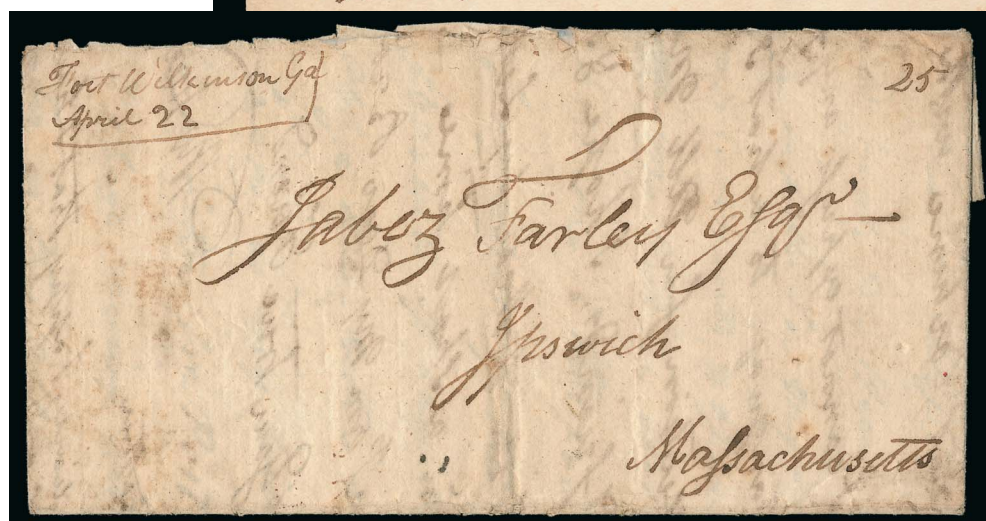 Fort Wilkinson Ga
25
April 22
Jabez Farley Esqr
Ipswich
Massachusetts